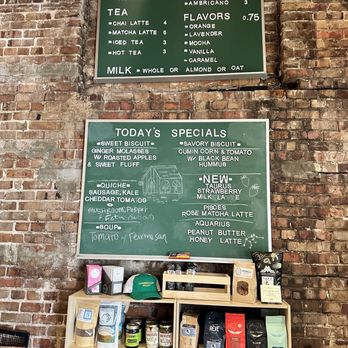 AMERICANO 3
TEA
CHAI LATTE 4
MATCHA LATTE 6
ICED TEA 3
HOT TEA 3
FLAVORS 0.75
ORANGE
LAVENDER
MOCHA
VANILLA
CARAMEL
MILK - WHOLE OR ALMOND OR OAT
TODAY'S SPECIALS
SWEET BISCUIT
GINGER MOLASSES
W/ ROASTED APPLES
& SWEET FLUFF
QUICHE
SAUSAGE, KALE
CHEDDAR, TOMATO
Mushroom, Pepper
SOUP
Tomato Parmesan
SAVORY BISCUIT
CUMIN CORN & TOMATO
W/ BLACK BEAN
HUMMUS
NEW
TAURUS
STRAWBERRY
MILK LATTE
PISCES
ROSE MATCHA LATTE
AQUARIUS
PEANUT BUTTER
HONEY LATTE